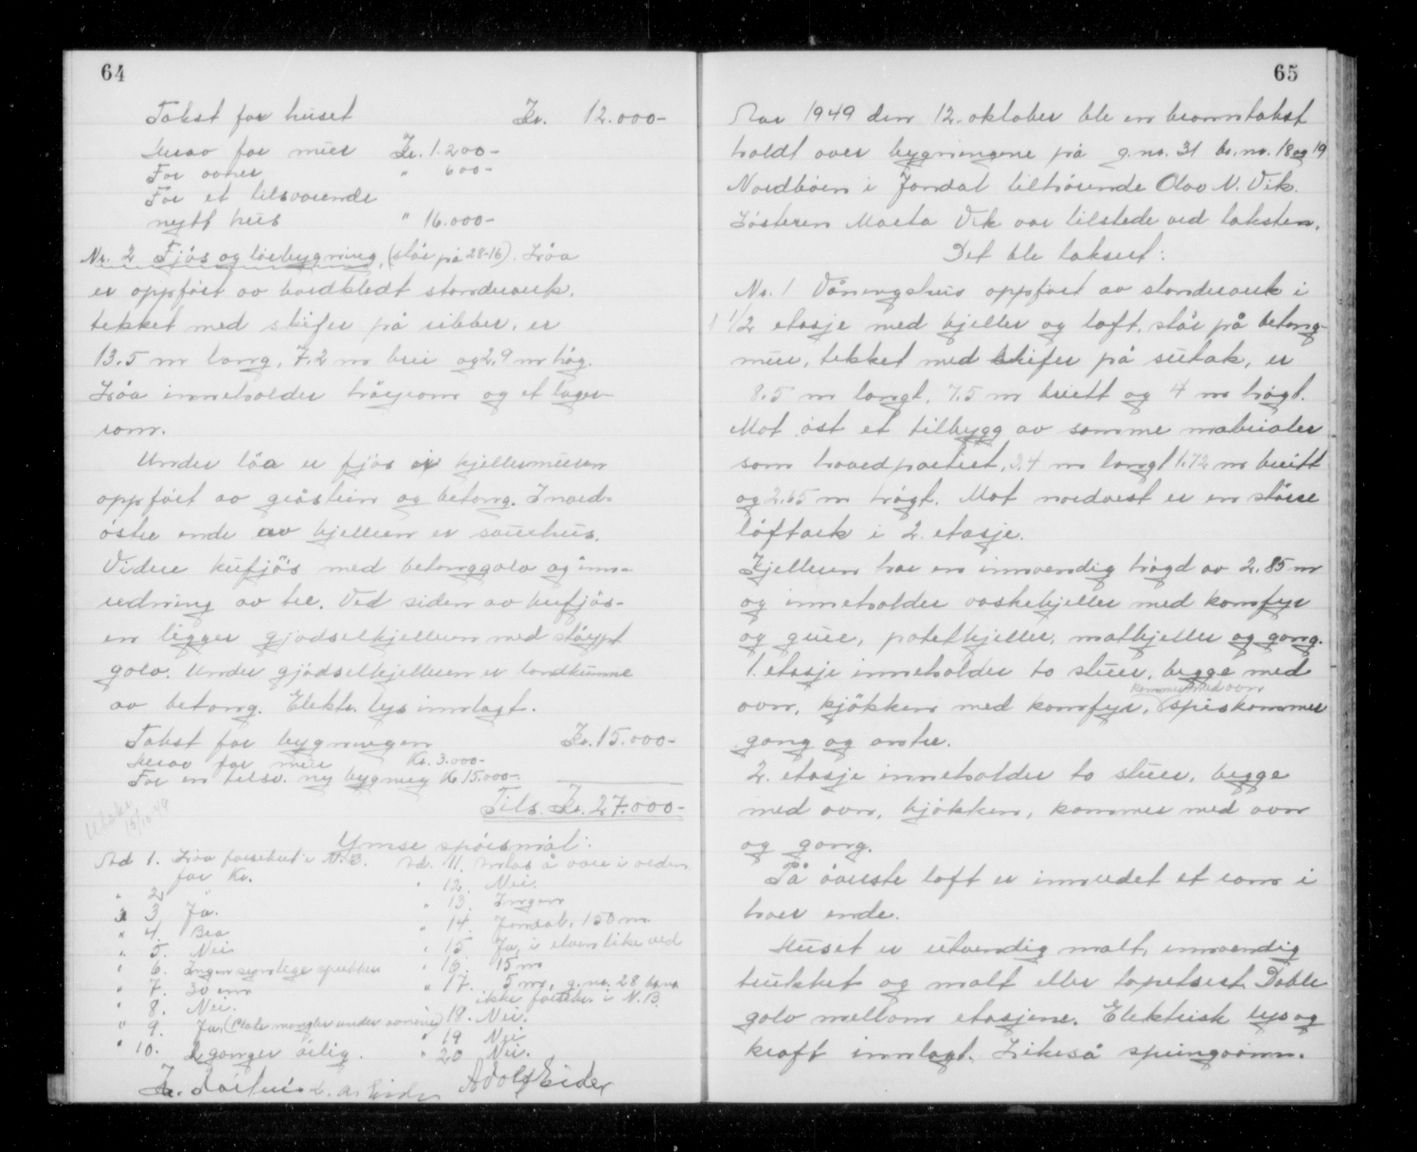 64
Takst for huset Kr. 12.000-
Herav for mur Kr. 1.200-
For ovner " 600-
For et tilsvarende
nytt hus " 16.000-
Nr. 2 Fjös og löebygning, (står på 28-16). Löa
er oppfört av bordkledt standverk.
tekket med skifer på ribber, er
13.5 m lang, 7.2 m brei og 2,9 m hög.
Löa inneholder höyrom og et lager-
rom.
Under löa er fjös i kjellermuren
oppfört av gråstein og betong. I nord-
östre ende av kjelleren er sauehus.
Videre kufjös med betonggolv og inn-
redning av tre. Ved siden av kufjös-
en ligger gjödselkjelleren med stöypt
golv. Under gjödselkjelleren er landkumme
av betong. Elektr. lys innlagt.
Takst for bygningen Kr. 15.000-
Herav for mur Kr. 3.000-
For en tilsv. ny bygning Kr. 15.000-
Tils. Kr. 27.000-
15/10-49
Ymse spörsmål:
Ad 1. Löa forsikret i N.B. Ad. 11. Antas å være i orden
for Kr. " 12. Nei.
" 2. " " 13. Ingen
" 3. Ja. " 14. Jondal, 150 m
" 4. Bra " 15. Ja, i elven like ved
" 5. Nei " 16. 15 m
" 6. Ingen synlege sprekker " 17. 5 m, g.nr. 28
" 7. 30 cm ikke forsikr. i N.B.
" 8. Nei. " 18. Nei.
" 9. Ja, (Plate mangler under ovnene) " 19 Nei
" 10. 2 ganger årlig. " 20 Nei.
Adolf Eider
65
Aar 1949 den 12. oktober ble en branntakst
holdt over bygningene på g.nr. 31 br.nr. 18 og 19
Nordböen i Jondal tilhörende Olav N. Vik.
Sösteren Marta Vik var tilstede ved taksten.
Det ble taksert:
Nr. 1 Våningshus oppfört av standverk i
1 1/2 etasje med kjeller og loft, står på betong-
mur, tekket med skifer på sutak, er
8.5 m langt, 7.5 m breitt og 4 m högt.
Mot öst et tilbygg av samme materialer
som hovedpartiet, 2,4 m langt 1.72 m breitt
og 2.65 m högt. Mot nordvest er en större
löftark i 2. etasje.
Kjelleren har en innvendig högd av 2.85 m
og inneholder vaskekjeller med komfyr
og grue, potetkjeller, matkjeller og gang.
1. etasje inneholder to stuer, begge med
kammer med ovn
ovn, kjökken med komfyr, spiskammer
gang og entre.
2. etasje inneholder to stuer, begge
med ovn, kjökken, kammer med ovn
og gang.
På överste loft er innredet et rom i
hver ende.
Huset er utvendig malt, innvendig
trukket og malt eller tapetsert. Doble
golv mellom etasjene. Elektrisk lys og
kraft innlagt. Likeså springvann.